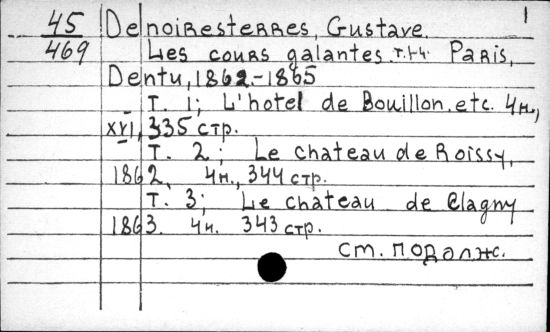 1
45
469
Delnoiresterres, Gustave.
Les cours galantes. т.1-4. Paris,
Dentu, 1862-1865
Т. 1; L'hotel de Bouillon, etc. 4н.,
XVI, 335 стр.
Т. 2; Le chateau de Roissy,
1862. 4н., 344 стр.
Т. 3; Le chateau de Clagny
1863. 4н. 343 стр.
См. подолж.